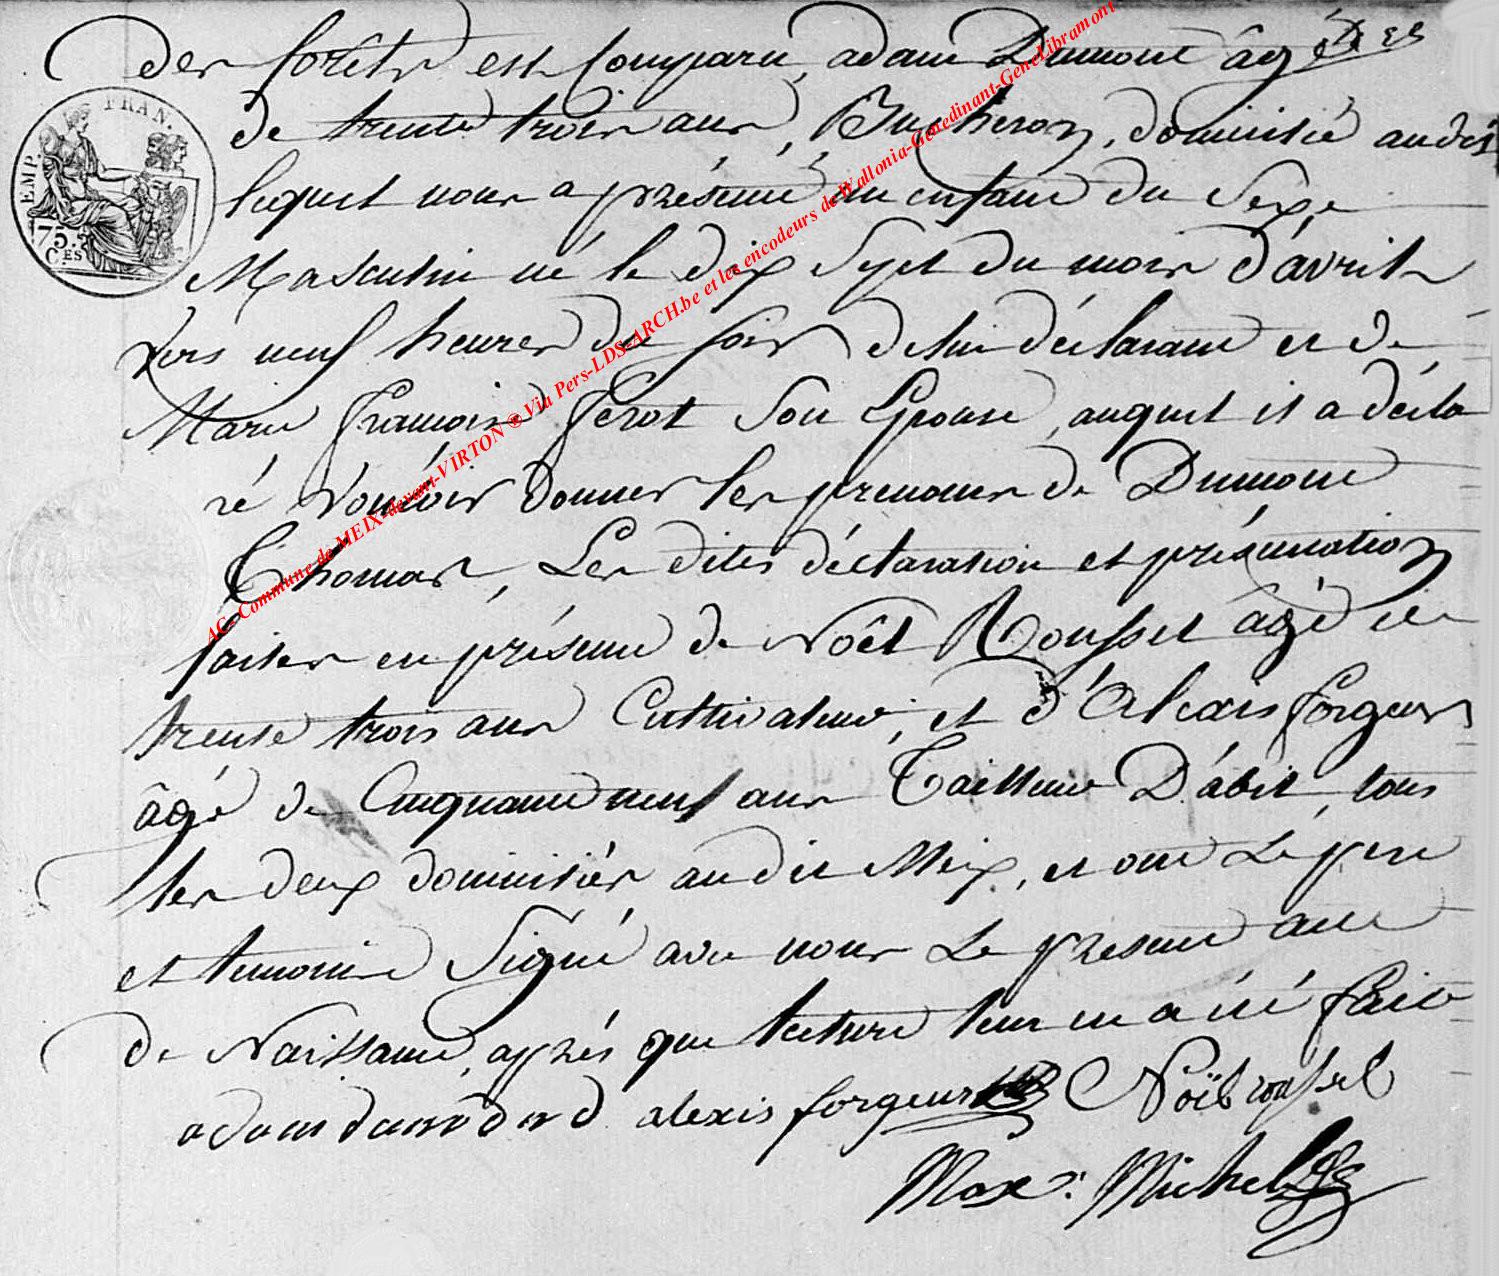 des forêts est Comparu, adam Dumont âgé
de trente trois ans, Bucheron, domicilié audit
lequel nous a présenté un enfant du Sexe
Masculin né le dix Sept du mois d'avril
vers neuf heures du soir de lui déclarant et de
Marie françoise ferot Son Epouse, auquel il a décla
ré Vouloir donner les prenoms de Dumont
Thomas, Les dites déclaration et présentation
faites en présence de Noêl Rousset âgé de
trente trois ans Cultivateur, et d'Alexis forgeur
âgé de Cinquante neuf ans Tailleur D'abit, tous
les deux domiciliés audit Meix, et ont Le pere
et temoins Signé avec nous Le présent acte
de Naissance, après que lecture leur en a été faite
adam dumond alexis forgeur Noël rousel
Max. Michel
EMP. FRAN.
75.
C.ES
AC- Commune de MEIX-devant-VIRTON ® Via Pers-LDS-ARCH.be et les encodeurs de Wallonia-Genedinant-GeneLibramont